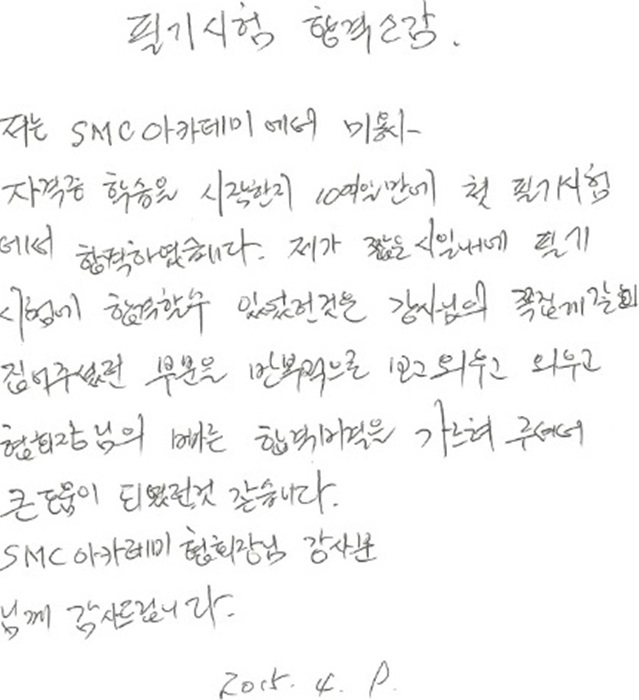 필기시험 합격소감.
저는 SMC아카데미에서 미용사
자격증 학습을 시작한지 10여일만에 첫 필기시험
에서 합격하였습니다. 제가 짧은시일내에 필기
시험에 합격할수 있었던것은 강사님의 꼭집게
집어주셨던 부분을 반복적으로 보고 외우고 외우고
협회장님의 빠른 합격비결을 가르쳐 주셔서
큰도움이 되였던것 같습니다.
SMC아카데미 협회장님 강사분
님께 감사드립니다.
2015. 4.